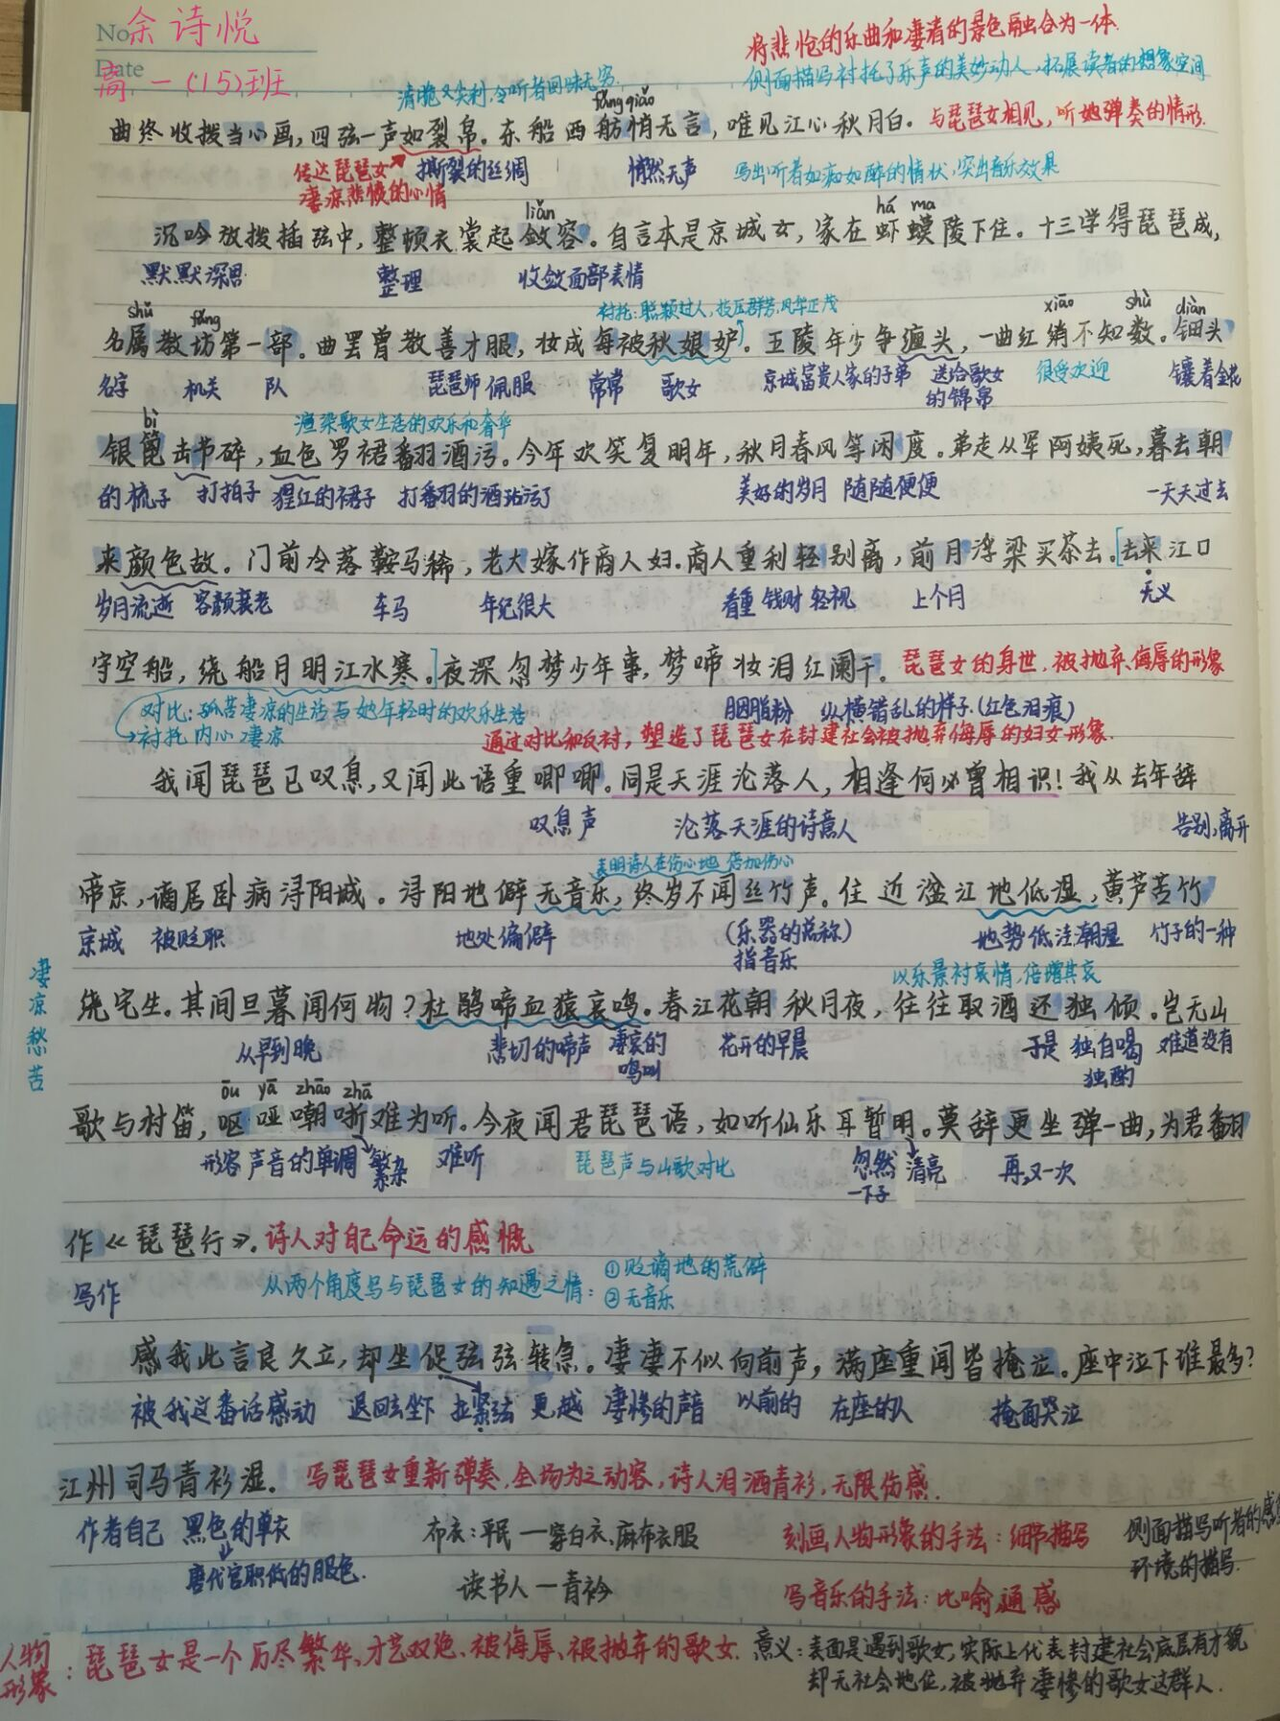 No 余诗悦
Date 高一(15)班
将悲怆的乐曲和凄清的景色融合为一体.
侧面描写衬托了乐声的美妙动人,拓展读者的想象空间
清脆又尖利,令听者回味无穷.
fǎng qiǎo
曲终收拨当心画,四弦一声如裂帛。东船西舫悄无言,唯见江心秋月白. 与琵琶女相见,听她弹奏的情形.
传达琵琶女 撕裂的丝绸 悄然无声 写出听者如痴如醉的情状,突出音乐效果
凄凉悲愤的心情
liǎn há ma
沉吟放拨插弦中,整顿衣裳起敛容。自言本是京城女,家在虾蟆陵下住。十三学得琵琶成,
默默深思 整理 收敛面部表情
衬托:聪颖过人,技压群芳,风华正茂
shǔ fāng xiāo shù diàn
名属教坊第一部。曲罢曾教善才服,妆成每被秋娘妒。五陵年少争缠头,一曲红绡不知数。钿头
名字 机关 队 琵琶师 佩服 常常 歌女 京城富贵人家的子弟 送给歌女 很受欢迎 镶着金花
的锦帛
bì 渲染歌女生活的欢乐和奢华
银篦击节碎,血色罗裙翻酒污。今年欢笑复明年,秋月春风等闲度。弟走从军阿姨死,暮去朝
的梳子 打拍子 猩红的裙子 打番羽的酒玷污了 美好的岁月 随随便便 一天天过去
来颜色故。门前冷落鞍马稀,老大嫁作商人妇.商人重利轻别离,前月浮梁买茶去.[去来江口
岁月流逝 容颜衰老 车马 年纪很大 看重 钱财 轻视 上个月 无义
守空船,绕船月明江水寒.]夜深忽梦少年事,梦啼妆泪红阑干. 琵琶女的身世,被抛弃、侮辱的形象
对比:孤苦凄凉的生活与她年轻时的欢乐生活 胭脂粉 纵横错乱的样子.(红色泪痕)
衬托内心凄凉 通过对比和反衬,塑造了琵琶女在封建社会被抛弃侮辱的妇女形象.
我闻琵琶已叹息,又闻此语重唧唧。同是天涯沦落人,相逢何必曾相识!我从去年辞
叹息声 沦落天涯的诗意人 告别,离开
表明诗人在伤心地 倍加伤心
帝京,谪居卧病浔阳城。浔阳地僻无音乐,终岁不闻丝竹声.住近湓江地低湿,黄芦苦竹
京城 被贬职 地处偏僻 (乐器的总称) 地势低洼潮湿 竹子的一种
指音乐
以乐景衬哀情,倍增其哀
凄凉愁苦
绕宅生。其间旦暮闻何物?杜鹃啼血猿哀鸣。春江花朝秋月夜,往往取酒还独倾。岂无山
从早到晚 悲切的啼声 凄哀的 花开的早晨 于是 独自喝 难道没有
鸣叫 独酌
ōu yā zhāo zhā
歌与村笛,呕哑嘲哳难为听。今夜闻君琵琶语,如听仙乐耳暂明。莫辞更坐弹一曲,为君翻
形容声音的单调 繁杂 难听 琵琶声与山歌对比 忽然 清亮 再,又一次
一下子
作《琵琶行》.诗人对自己命运的感慨
写作 从两个角度写与琵琶女的知遇之情: ①贬谪地的荒僻
②无音乐
感我此言良久立,却坐促弦弦转急。凄凄不似向前声,满座重闻皆掩泣。座中泣下谁最多?
被我这番话感动 退回去坐下 拉紧弦 更越 凄惨的声音 以前的 在座的人 掩面哭泣
江州司马青衫湿。 写琵琶女重新弹奏,全场为之动容,诗人泪洒青衫,无限伤感.
作者自己 黑色的单衣 布衣:平民一穿白衣、麻布衣服 刻画人物形象的手法:细节描写 侧面描写听者的感
唐代官职低的服色. 环境的描写.
读书人一青衿 写音乐的手法:比喻,通感
人物形象:琵琶女是一个历尽繁华、才艺双绝、被侮辱、被抛弃的歌女. 意义:表面是遇到歌女,实际上代表封建社会底层有才貌
却无社会地位,被抛弃凄惨的歌女这群人.